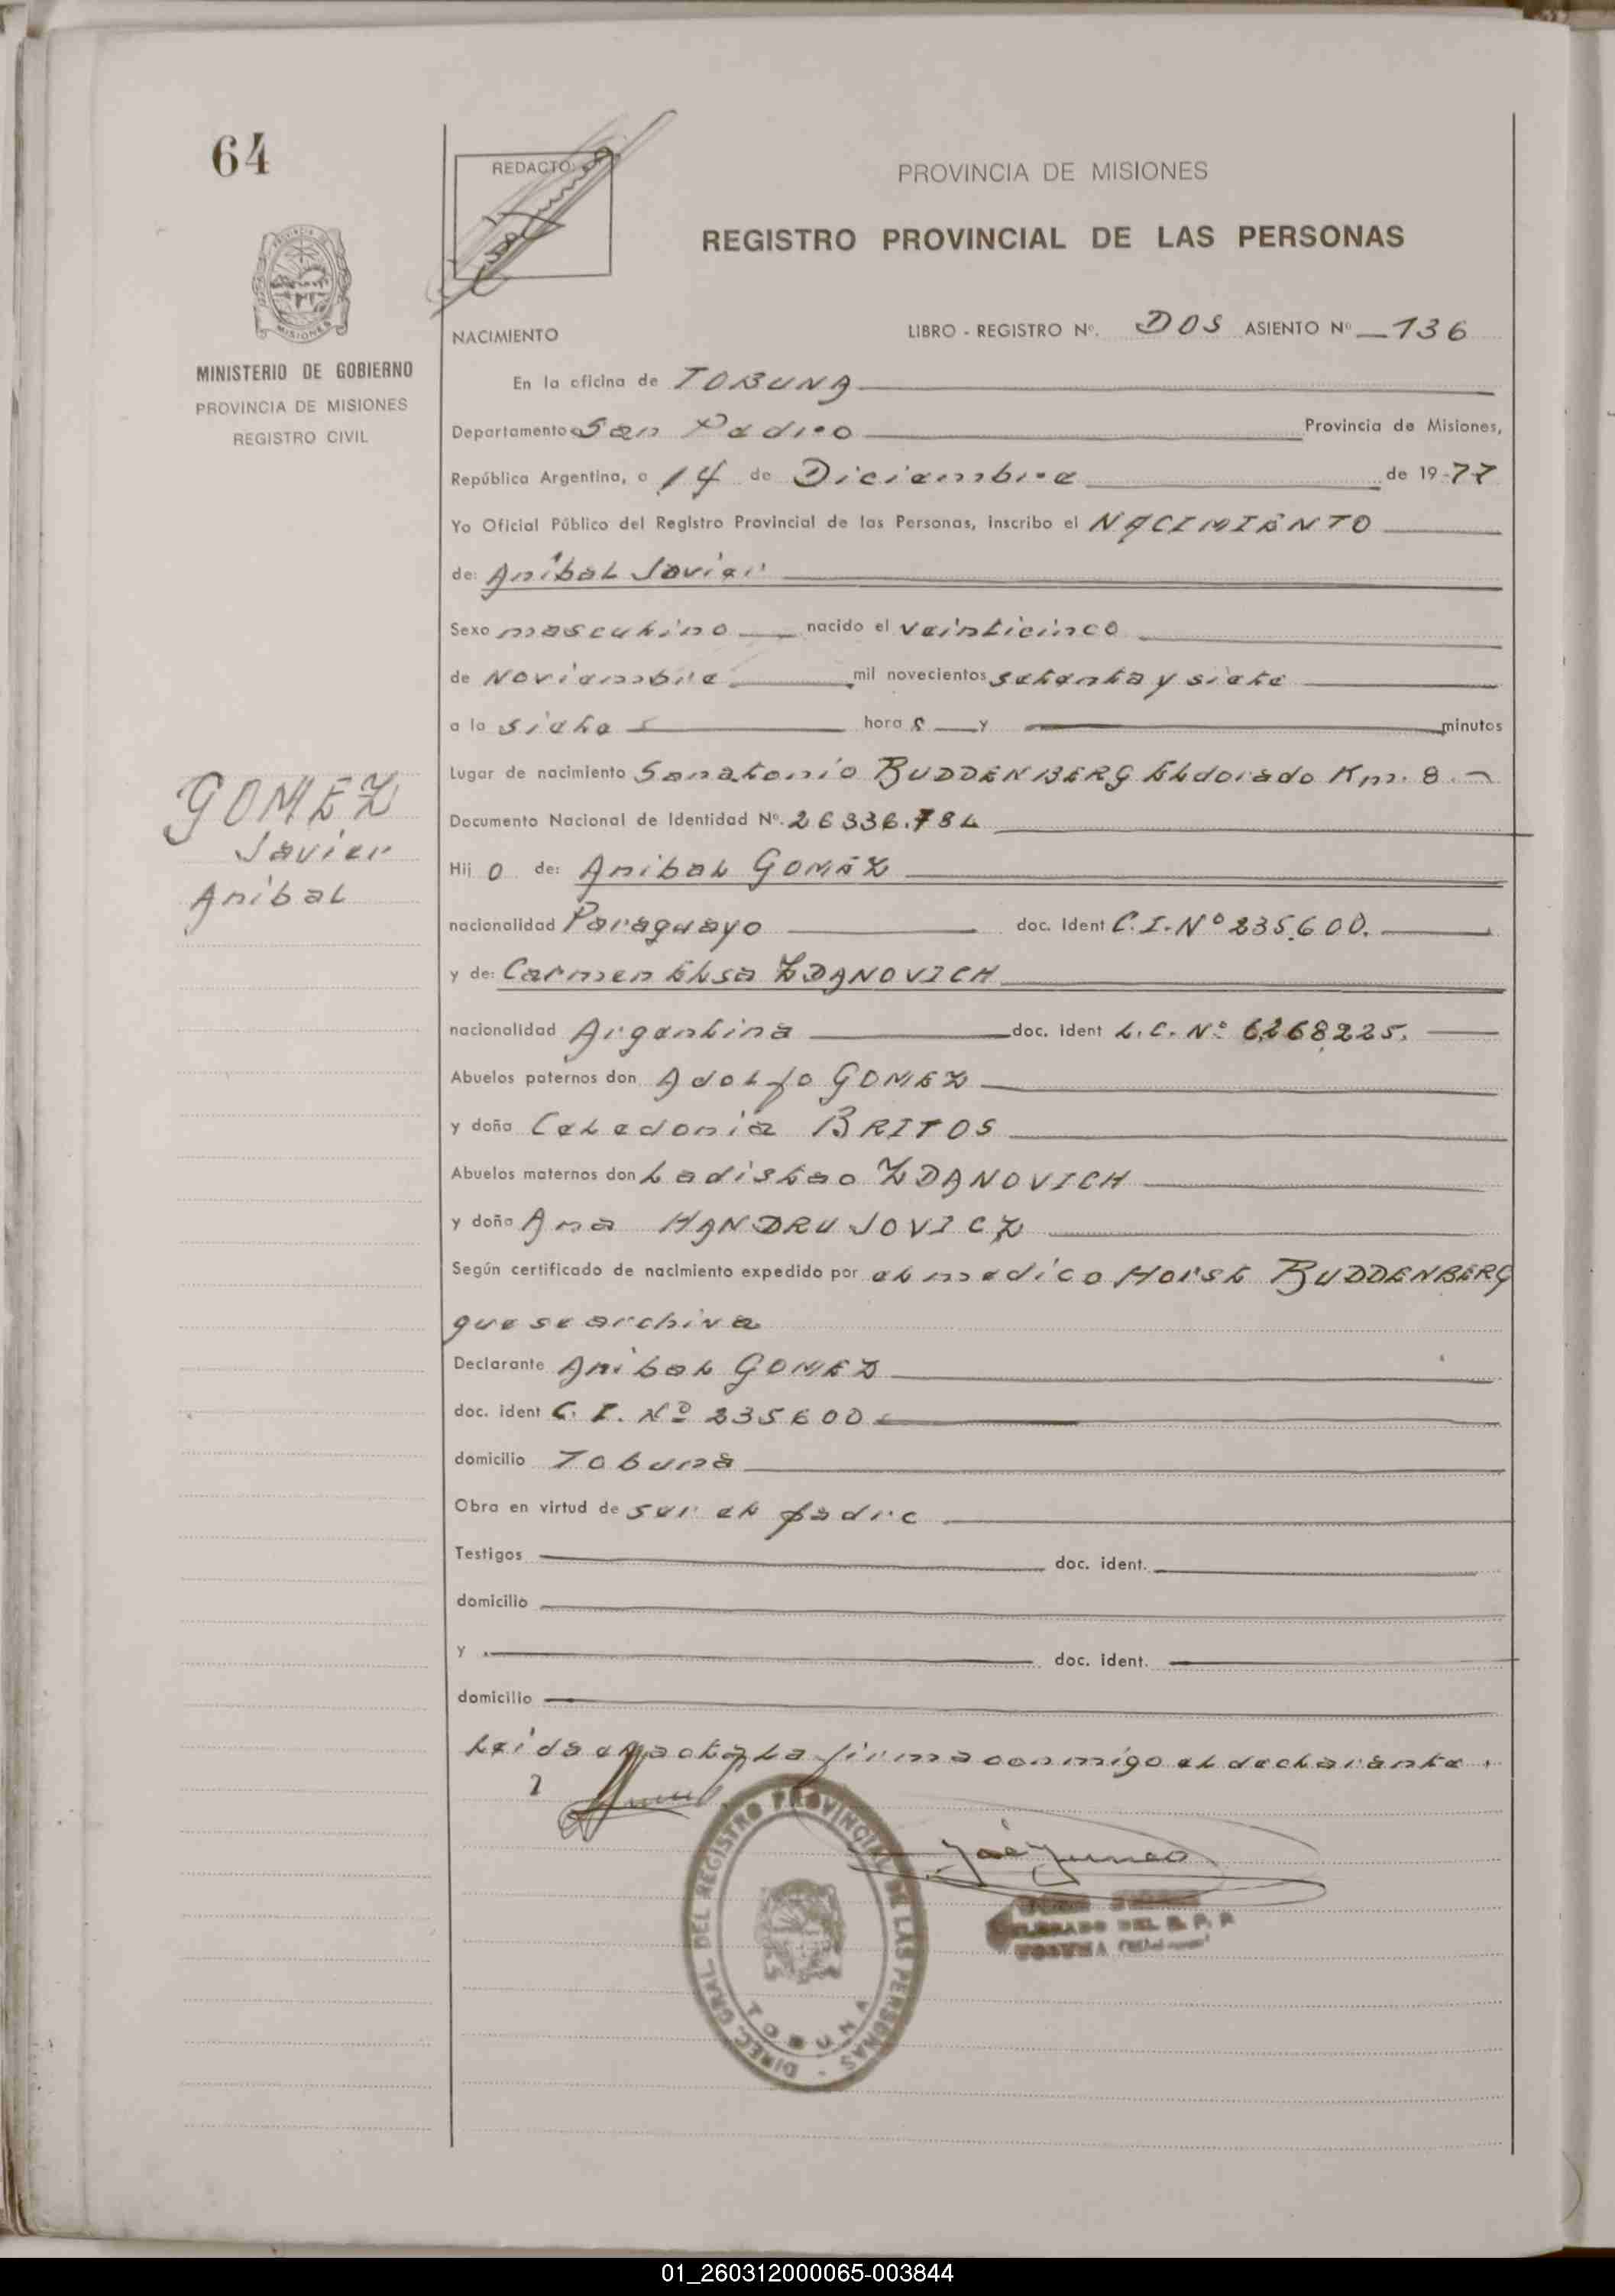 64
REDACTO:
PROVINCIA DE MISIONES
REGISTRO PROVINCIAL DE LAS PERSONAS
MISIONES
MINISTERIO DE GOBIERNO
PROVINCIA DE MISIONES
REGISTRO CIVIL
NACIMIENTO
LIBRO - REGISTRO Nº. DOS ASIENTO Nº 136
En la oficina de TOBUNA
Departamento San Pedro Provincia de Misiones,
República Argentina, a 14 de Diciembre de 1977
Yo Oficial Público del Registro Provincial de las Personas, inscribo el NACIMIENTO
de: Anibal Javier
Sexo masculino nacido el veinticinco
de Noviembre mil novecientos setenta y siete
a la siete s hora s y minutos
Lugar de nacimiento Sanatorio BUDDENBERG Eldorado Km. 8.
Documento Nacional de Identidad Nº. 26336.784
GOMEZ
Javier
Anibal
Hij o de: Anibal GOMEZ
nacionalidad Paraguayo doc. Ident C.I. Nº 235.600.
y de: Carmen Elsa ZDANOVICH
nacionalidad Argentina doc. ident L.C. Nº 6268225.
Abuelos paternos don Adolfo GOMEZ
y doña Celedonia BRITOS
Abuelos maternos don Ladislao ZDANOVICH
y doña Ana HANDRUJOVICZ
Según certificado de nacimiento expedido por el medico Horst BUDDENBERG
que se archiva
Declarante Anibal GOMEZ
doc. ident C. I. Nº 235600
domicilio Tobuna
Obra en virtud de ser el padre
Testigos doc. ident.
domicilio
y doc. ident.
domicilio
Leida el acta, la firma conmigo el declarante.
DIREC. GRAL. DEL REGISTRO PROVINCIAL DE LAS PERSONAS -
TOBUNA
DELEGADO DEL R. P. P.
TOBUNA (Misiones)
01_260312000065-003844